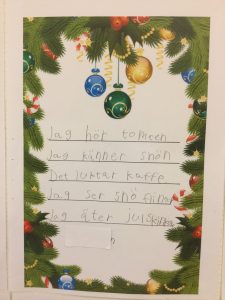 Jag hör tomten
Jag känner snön
Det luktar kaffe
Jag ser snö flingor
Jag äter julskinka